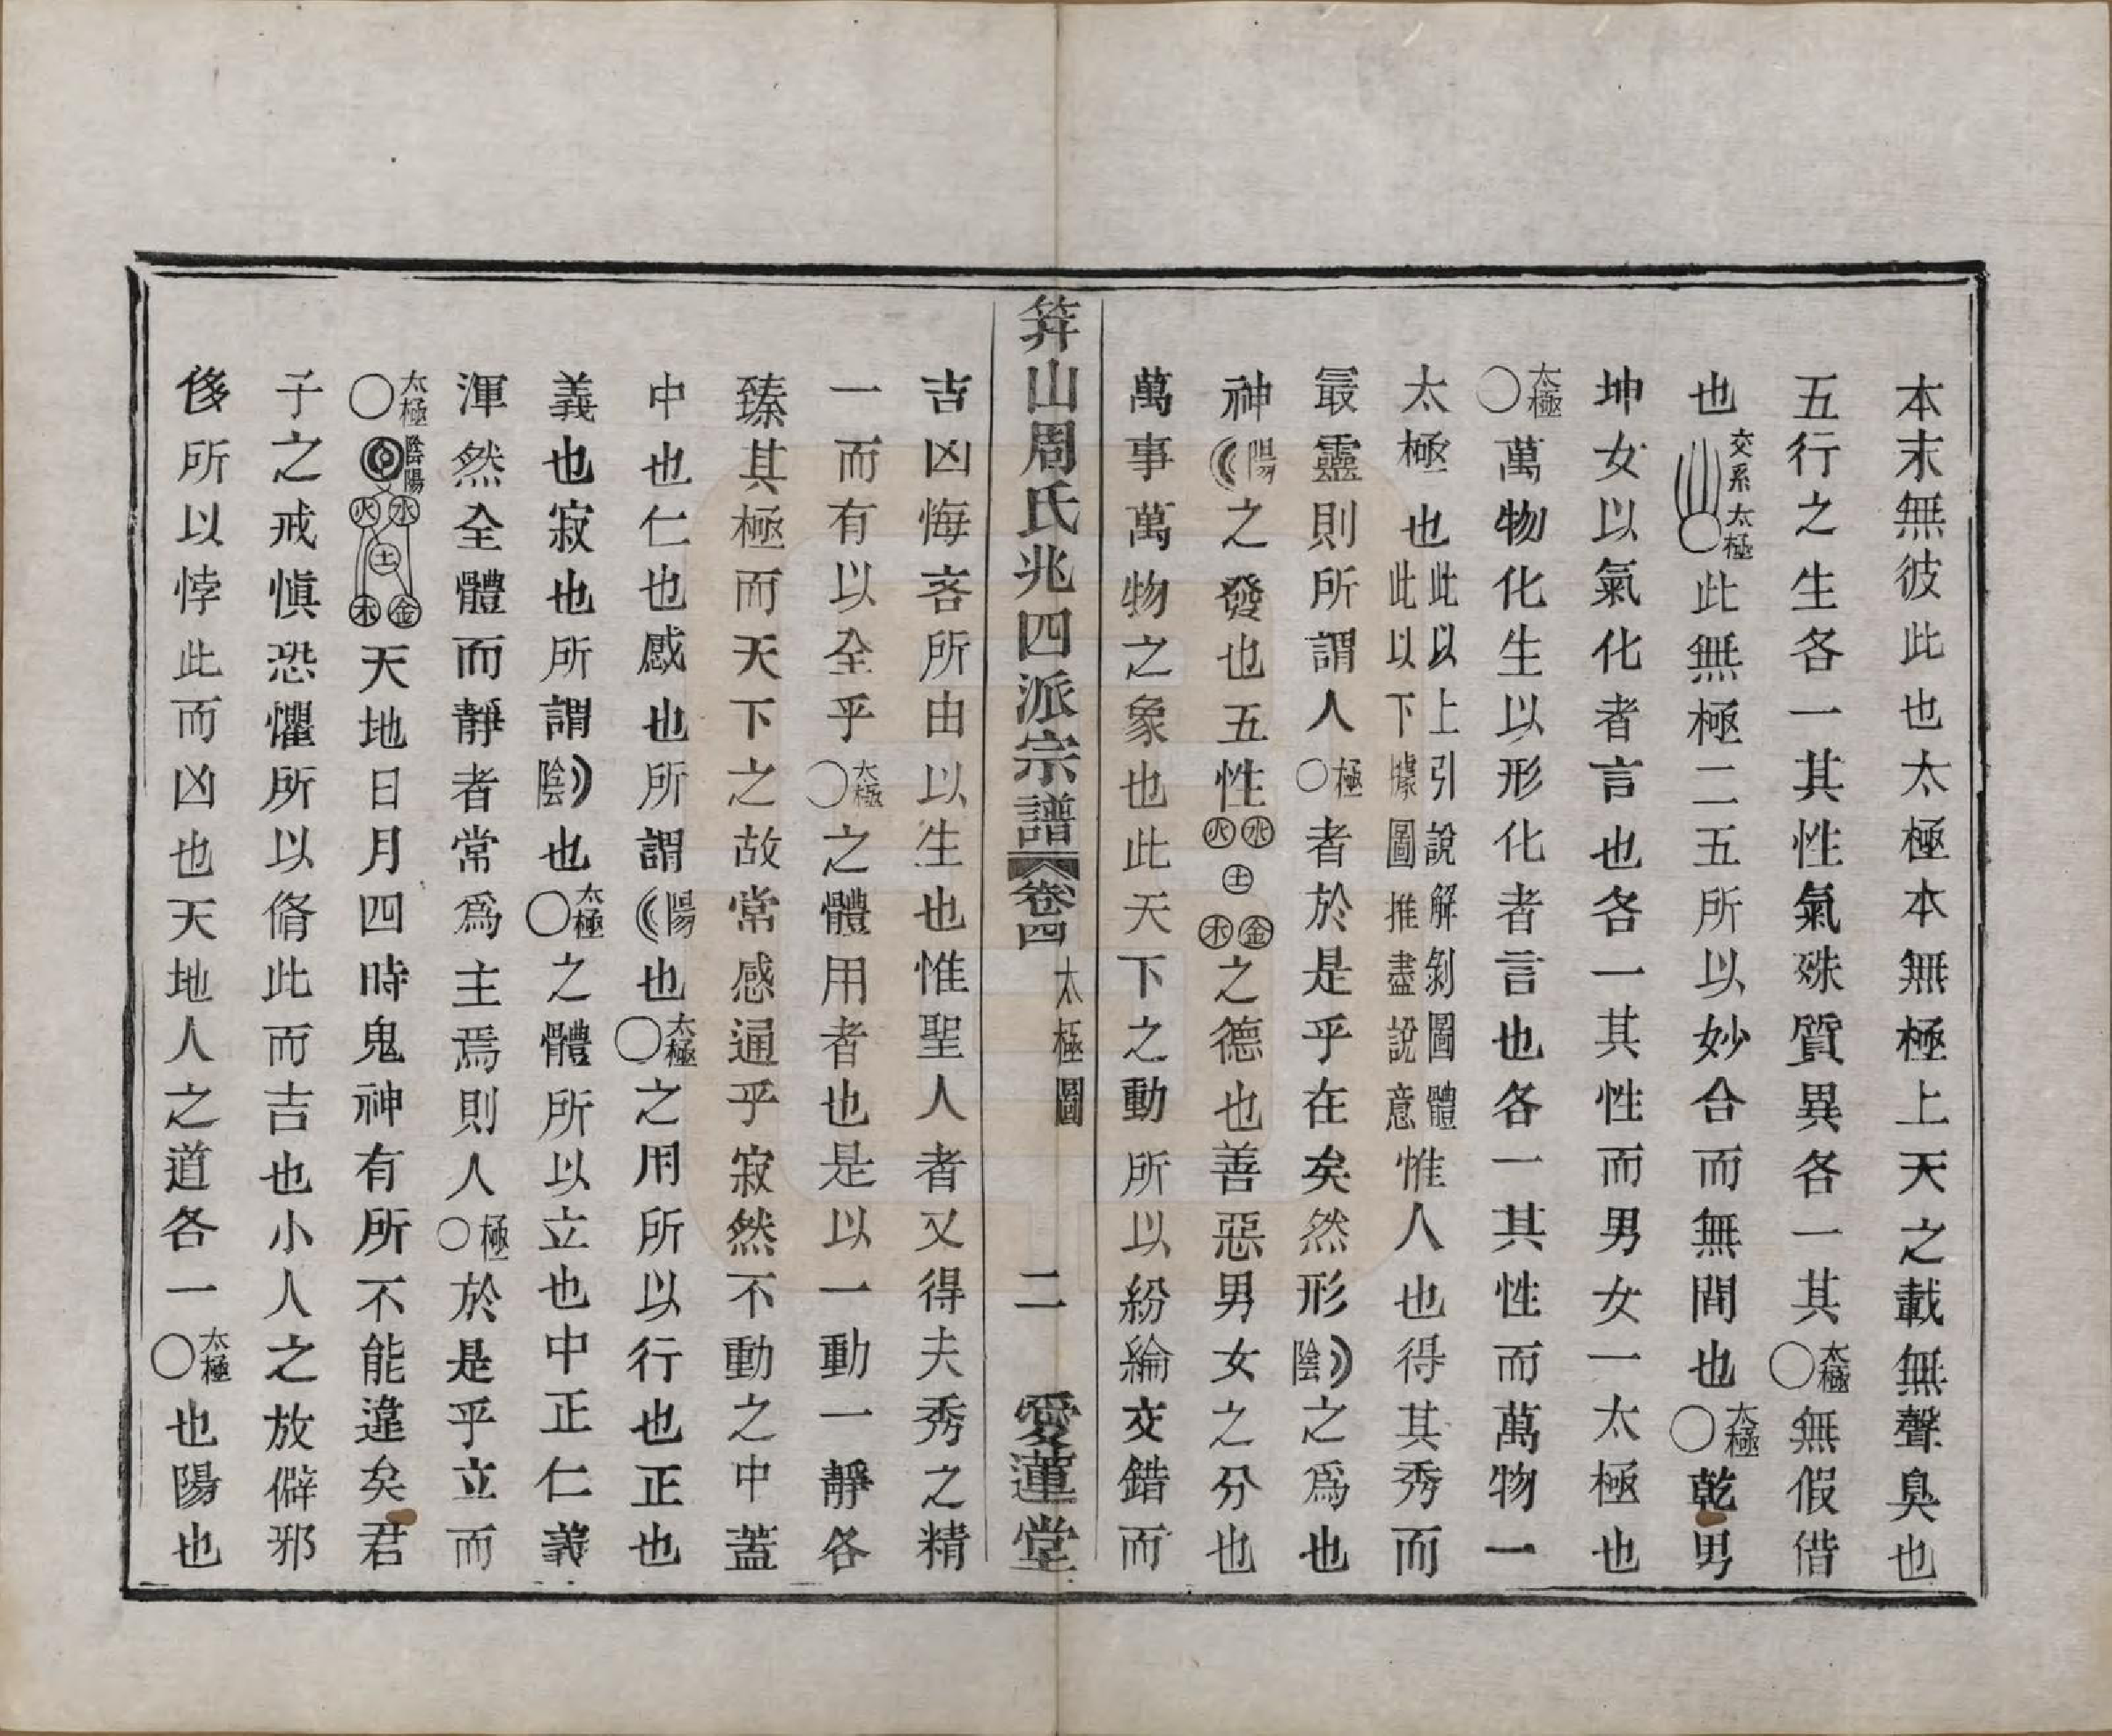 本末無彼此也太極本無極上天之載無聲臭也
五行之生各一其性氣殊質異各一其○太極無假借
也交系○太極此無極二五所以妙合而無間也○太極乾男
坤女以氣化者言也各一其性而男女一太極也
○太極萬物化生以形化者言也各一其性而萬物一
太極也此以上引說解剝圖體此以下據圖推盡說意惟人也得其秀而
最靈則所謂人○極者於是乎在矣然形陰之爲也
神陽之發也五性水火土金木之德也善惡男女之分也
萬事萬物之象也此天下之動所以紛綸交錯而
筭山周氏兆四派宗譜 卷四 太極圖 二 愛蓮堂
吉凶悔吝所由以生也惟聖人者又得夫秀之精
一而有以全乎○太極之體用者也是以一動一靜各
臻其極而天下之故常感通乎寂然不動之中蓋
中也仁也感也所謂陽也○太極之用所以行也正也
義也寂也所謂陰也○太極之體所以立也中正仁義
渾然全體而靜者常爲主焉則人○極於是乎立而
○太極陰陽水火土金木天地日月四時鬼神有所不能違矣君
子之戒愼恐懼所以脩此而吉也小人之放僻邪
侈所以悖此而凶也天地人之道各一○太極也陽也